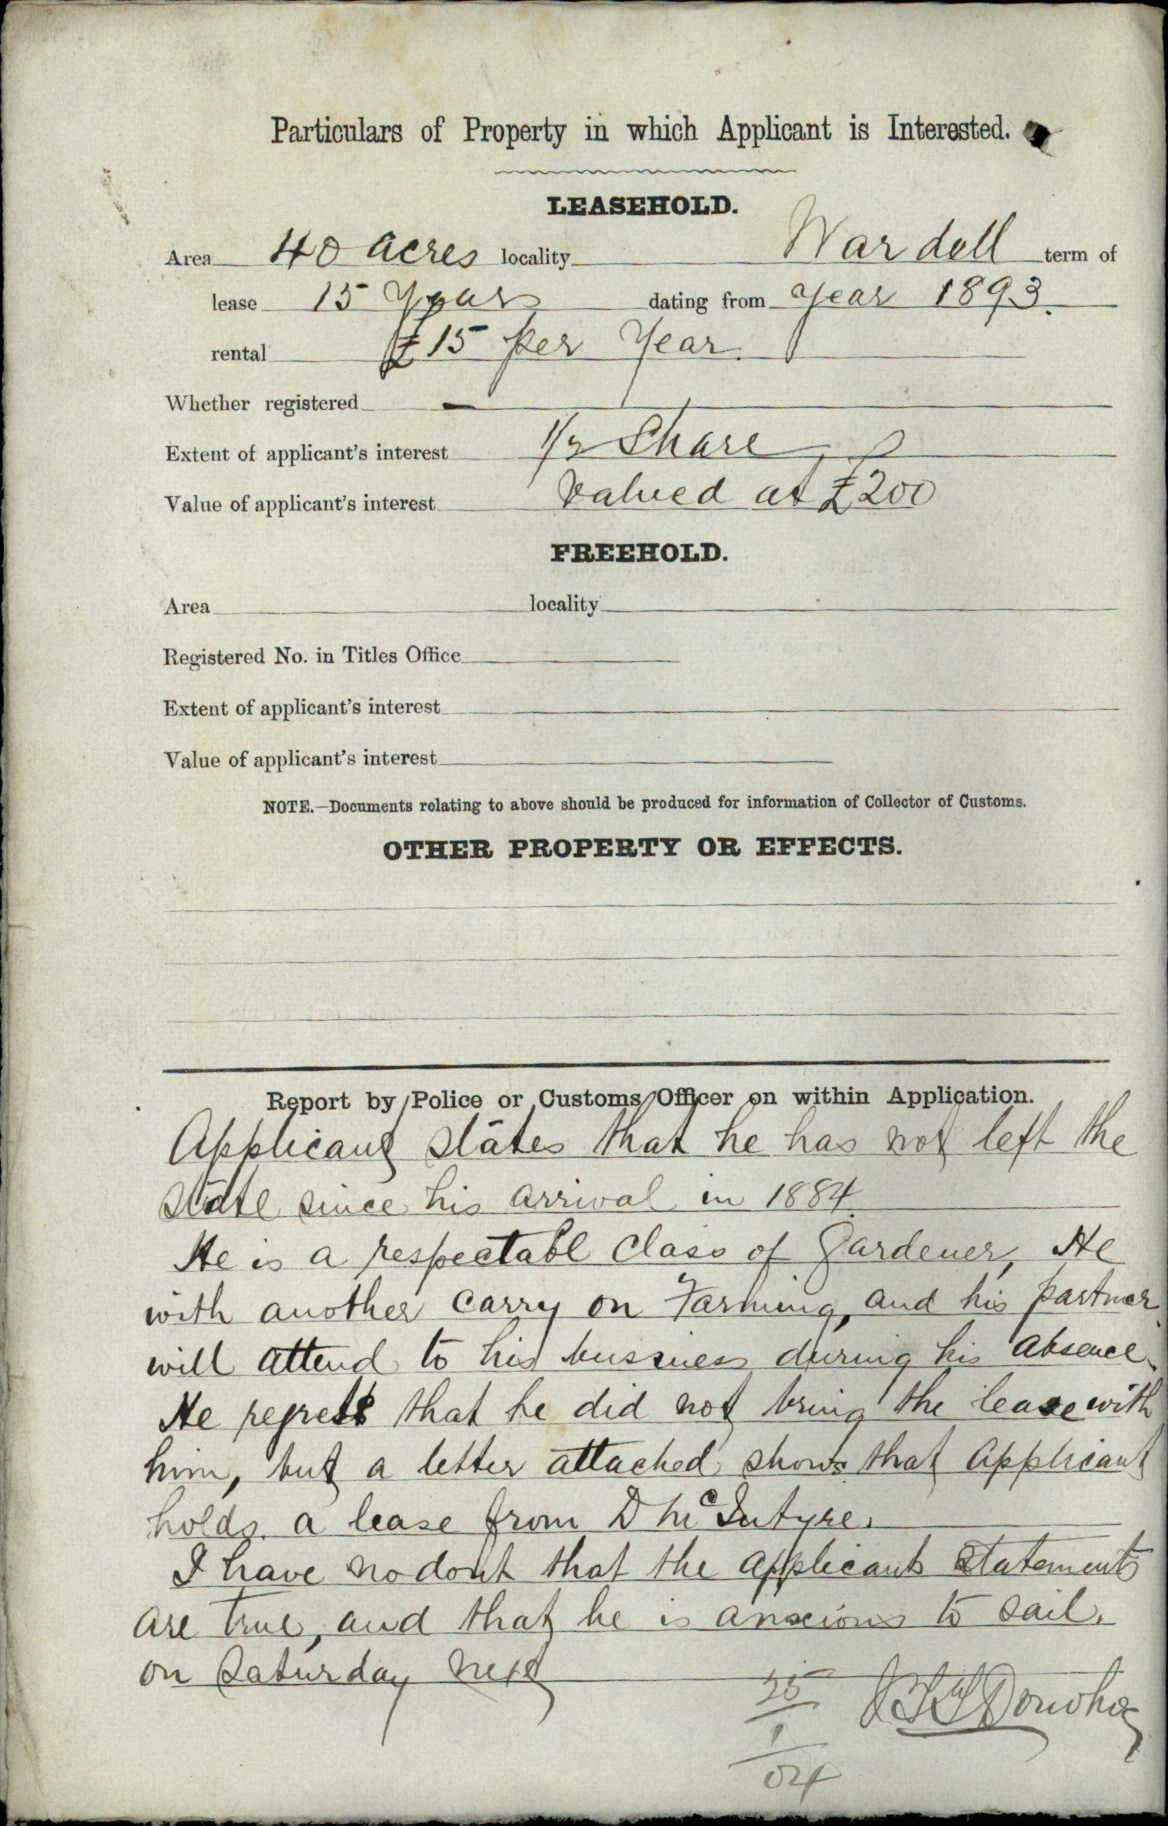 Particulars of Property in which Applicant is Interested.
LEASEHOLD.
Area 40 acres locality Wardell term of
lease 15 Years dating from Year 1893.
rental £15 per Year.
Whether registered —
Extent of applicant's interest 1/2 Share
Value of applicant's interest Valued at £200
FREEHOLD.
Area locality
Registered No. in Titles Office
Extent of applicant's interest
Value of applicant's interest
NOTE.—Documents relating to above should be produced for information of Collector of Customs.
OTHER PROPERTY OR EFFECTS.
Report by Police or Customs Officer on within Application.
Applicant states that he has not left the
state since his arrival in 1884.
He is a respectabl class of Gardener, He
with another carry on Farming, and his partner
will attend to his bussiness during his absence.
He regrets that he did not bring the lease with
him, but a letter attached shows that Applicant
holds a lease from D McIntyre.
I have no dout that the applicants statements
are true, and that he is anxious to sail.
on Saturday next
25 Donohoe
1
04